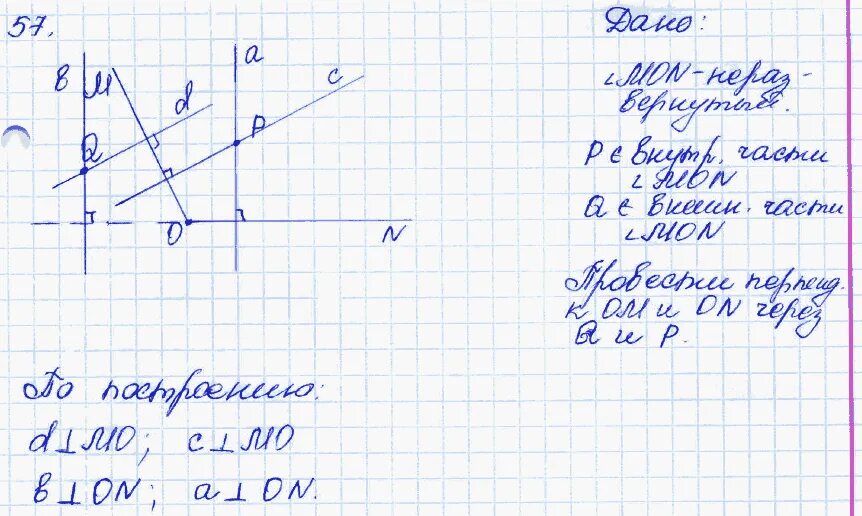 57.
в
М
d
a
c
Q
P
O
N
Дано:
∠MON - нераз-
вернутый.
P ∈ внутр. части
∠MON
Q ∈ внешн. части
∠MON
Провести перпенд.
к OM и ON через
Q и P.
По построению:
d⊥MO; c⊥MO
в⊥ON; a⊥ON.